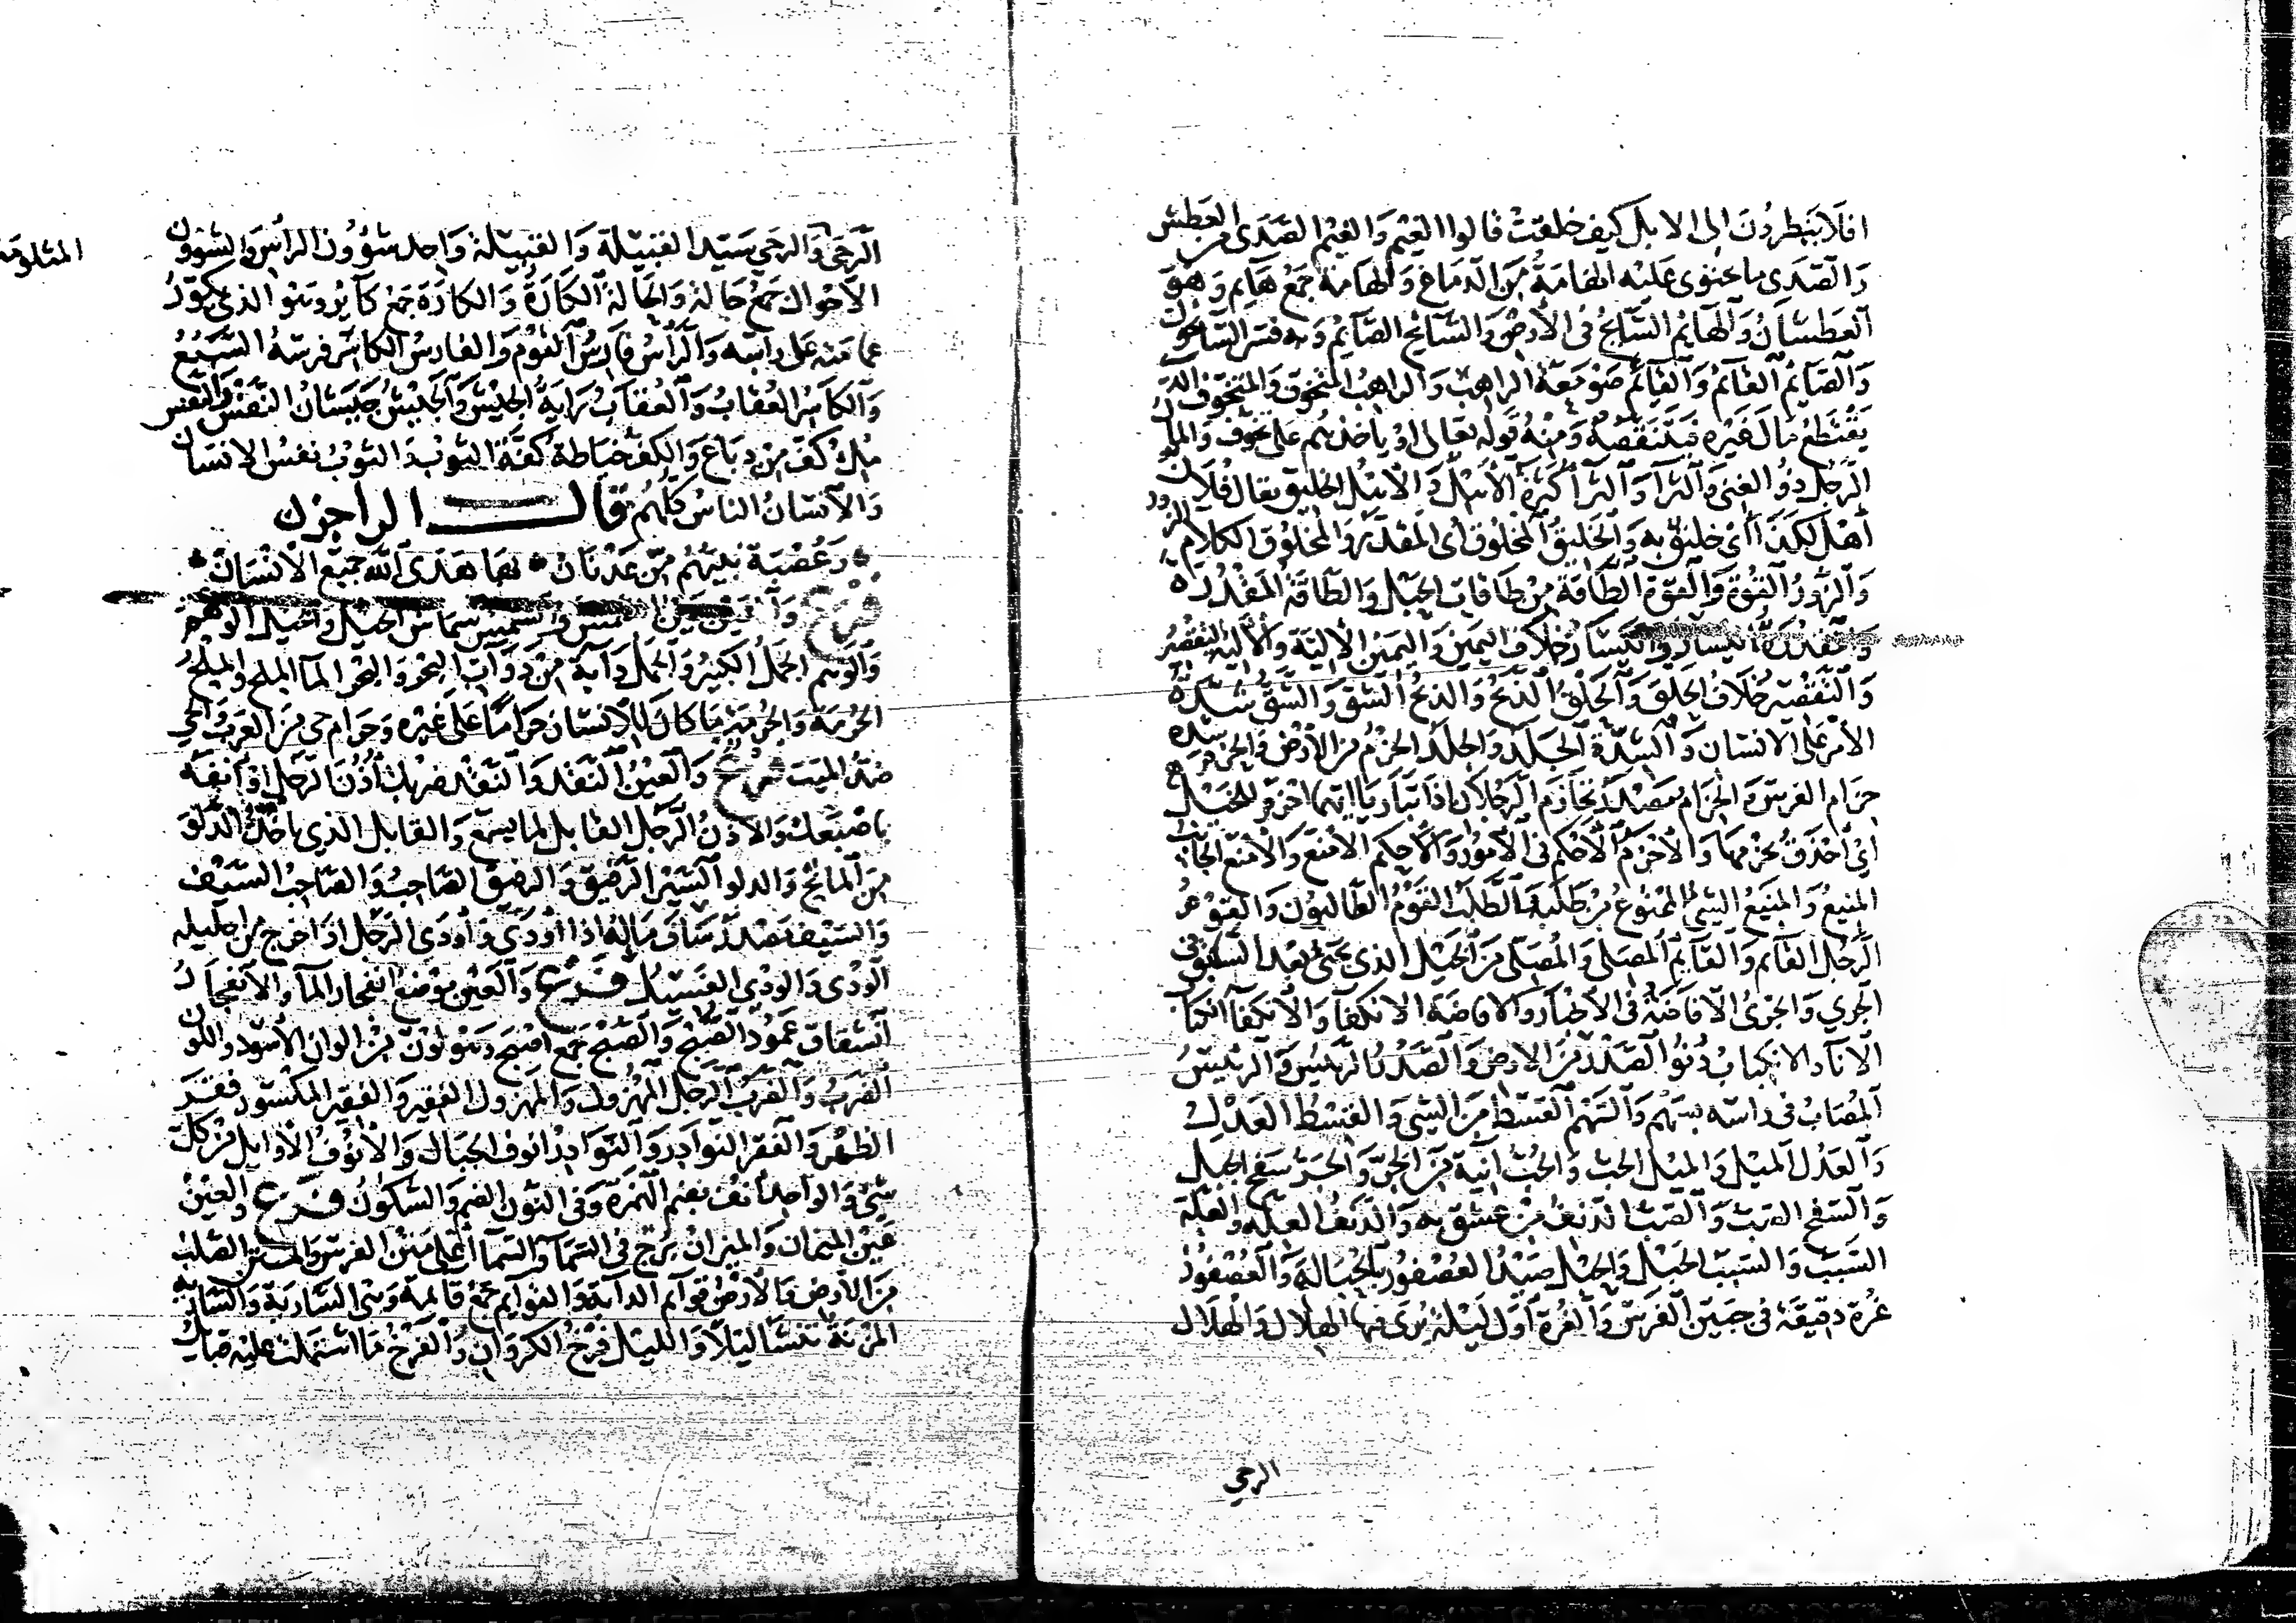 افلا ينظرون الى الابل كيف خلقت قالوا الغيم والغيم الصدى من العطش
والصدى ما احتوى عليه الهامة من الدماغ والهامة جمع هايم وهو
العطشان والهايم السايح فى الارض والسايح الصايم وبه فسر السايحون
والصايم القايم والقايم صومعة الراهب والراهب المتخوف والمتخوف الذى
يقتطع مال غيره فيتنقصه ومنه قوله تعالى او ياخذهم على تخوف والمال
الرجل ذو الغنى والثرا والثرا كثرة الاهل والاهل الخليق يقال فلان
اهل لكذا اى خليق به والخليق المخلوق اى المقدر والمخلوق الكلام الزور
والزور القوة والقوة الطاقة من طاقات الحبل والطاقة المقدرة
والمقدرة اليسار واليسار خلاف اليمين واليمين الالية والالية التقصير
والتقصير خلاف الحلق والحلق الذبح والذبح الشق والشق شدة
الامر على الانسان والشدة الجلد والجلد الحزم من الارض والحزم شده
حزام الفرس والحزام مصدر تحازم الرجلان اذا تباريا ايهما احزم للخيل
اى احذق بحزمها والاحزم الاحكم فى الامور والاحكم الامنع والامنع الجانب
المنيع والمنيع الشى الممنوع من طلبه الطلب القوم الطالبون والقوم
الرجل القايم والقايم المصلى والمصلى من الخيل الذى يجى بعد السابق فى
الجرى والجرى الافاضة فى الاخبار والافاضة الانكفا والانكفا انكباب
الانا والانكباب دنو الصدر من الارض والصدر الرئيس والرئيس
المصاب فى راسه بسهم والسهم القسط من الشى والقسط العدل
والعدل الميل والميل الحب والحب انية من الجر والجر سفح الجبل
والسفح الصب والصب الدنف من عشق به والدنف العلة والعلة
السبب والسبب الحبل والحبل صيد العصفور بالحبالة والعصفور
غرة دقيقة فى جبين الفرس والغرة اول ليلة يرى فيها الهلال والهلال
الرحى
الرحى والرحى سيد القبيلة والقبيلة واحد شؤون الراس والشؤون
الاحوال جمع حالة والحالة الكارة والكارة جمع كاير وهو الذى يكور
عمامته على راسه والراس فارس القوم والفارس الكاسر فرسه السبع
والكاسر العقاب والعقاب راية الجيش والجيش جيشان النفس والنفس
ملء كف من دباغ والكف خياطة كفة الثوب والثوب نفس الانسان
والانسان الناس كلهم قال الراجز
وعصبة نبيهم من عدنان بها هدى الله جميع الانسان
الجمل والجمل الوهم
والوهم الجمل الكبير والجمل دابة من دواب البحر والبحر الما الملح والملح
الحرمة والحرمة ما كان للانسان حراما على غيره وحرام حى من العرب والحى
ضد الميت فرع والعين النقد والنقد ضربك اذن الرجل او انفه
باصبعك والاذن الرجل القابل لما يسمع والقابل الذى ياخذ الدلو
من الماتح والدلو السير الرفيق والرفيق الصاحب والصاحب السيف
والسيف مصدر ساف ماله اذا اودى واودى الرجل اذا خرج من احليله
الودى والودى الفسيل فرع والعين موضع انفجار الما والانفجار
انشقاق عمود الصبح والصبح جمع اصبح وهو لون من الوان الاسود واللون
الضرب والضرب الرجل المهزول والمهزول الفقير والفقير المكسور فقر
الظهر والفقر النوادر والنوادر انوف الجبال والانوف الاوايل من كل
شى والواحد انف بضم الهمزة وفى النون الضم والسكون فرع والعين
عين الميزان والميزان برج فى السما والسما اعلى متن الفرس والمتن الصلب
من الارض والارض قوايم الدابة والقوايم جمع قايمة وهى السارية والسارية
المزنة تنشا ليلا والليل فرخ الكروان والفرخ ما اشتملت عليه قبايل